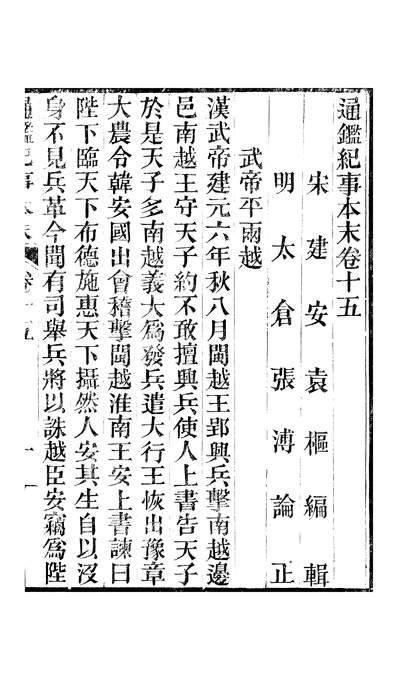 通鑑紀事本末卷十五
宋建安袁樞編輯
明太倉張溥論正
武帝平兩越
漢武帝建元六年秋八月閩越王郢興兵擊南越邊
邑南越王守天子約不敢擅興兵使人上書告天子
於是天子多南越義大爲發兵遣大行王恢出豫章
大農令韓安國出會稽擊閩越淮南王安上書諫曰
陛下臨天下布德施惠天下攝然人安其生自以沒
身不見兵革今聞有司舉兵將以誅越臣安竊爲陛
通鑑紀事本末 卷十五 一